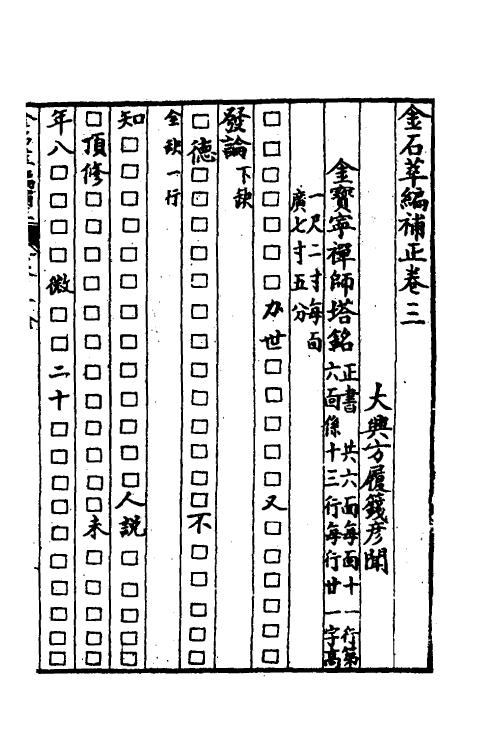 金石萃編補正卷三
大興方履籛彥聞
金寶寧禪師塔銘 正書 共六面每面十一行第六面係十三行每行廿一字高一尺二寸每面廣七寸五分
□□□□□□□力世□□□□□又□□□□□□
發論下缺
□德□□□□□□□□□□□□不□□□□□
全缺一行
知□□□□□□□□□□□□□人說□□□□□
□頂修□□□□□□□□□□□□□未□□□□□
年八□□□□□微□□二十□□□□□□□□□□